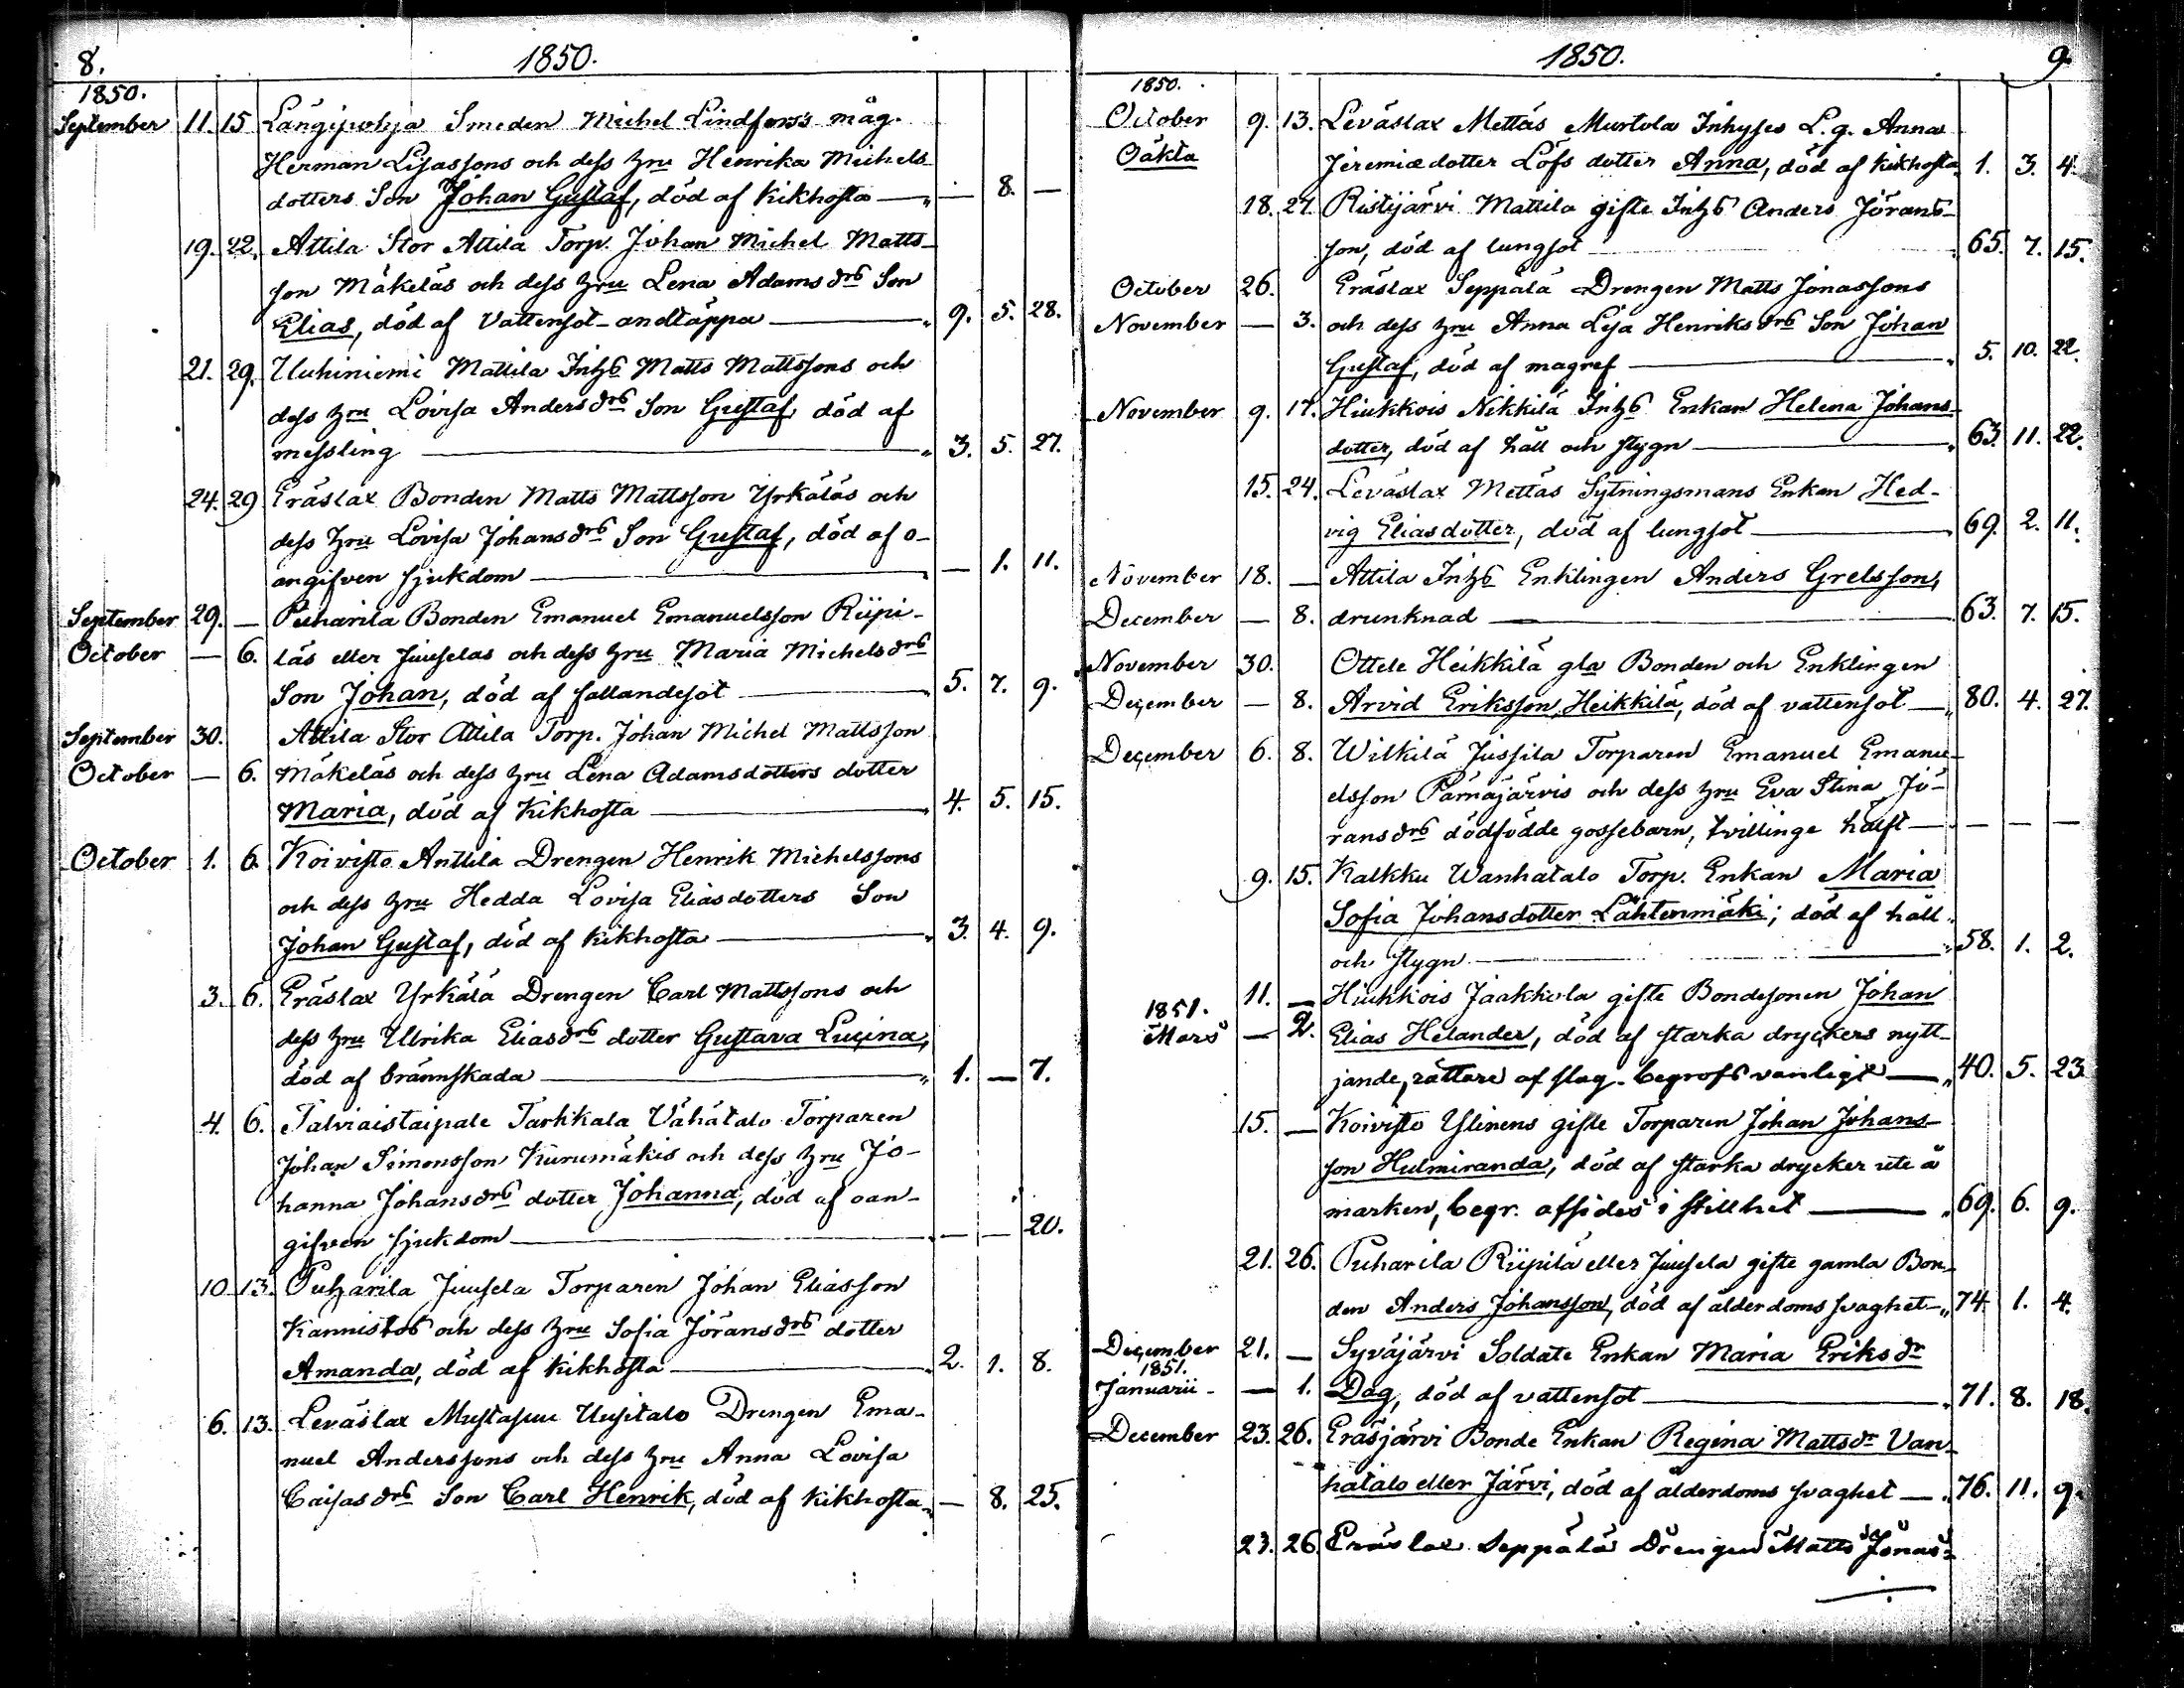 8. 1850.
1850.
September 11. 15 Långipohja Smeden Michel Lindfors's måg.
Herman Lisassons och dess hru Henrika Michels-
dotters Son Johan Gustaf, död af Kikhosta — „ — 8. —
19. 22. Attila Stor Attila Torp. Johan Michel Matts-
son Mäkeläs och dess hru Lena Adamsdrs Son
Elias, död af Vattensot-andtäppa — „ 9. 5. 28.
21. 29. Uuhiniemi Mattila Inhs Matts Mattssons och
dess hru Lovisa Andersdrs Son Gustaf död af
messling — „ 3. 5. 27.
24. 29 Eräslax Bonden Matts Mattsson Yrkäläs och
dess hru Lovisa Johansdrs Son Gustaf, död af o-
angifven sjukdom — „ — 1. 11.
September 29. — Puharila Bonden Emanuel Emanuelsson Riipi-
October — 6. läs eller Juuselas och dess hru Maria Michelsdrs
Son Johan, död af fallandesot — „ 5. 7. 9.
September 30. Attila Stor Attila Torp. Johan Michel Mattsson
October — 6. Mäkeläs och dess hru Lena Adamsdotters dotter
Maria, död af Kikhosta — „ 4. 5. 15.
October 1. 6. Koivisto Anttila Drengen Henrik Michelssons
och dess hru Hedda Lovisa Eliasdotters Son
Johan Gustaf, död af Kikhosta — „ 3. 4. 9.
3. 6. Eräslax Yrkälä Drengen Carl Mattssons och
dess hru Ulrika Eliasdrs dotter Gustava Lucina,
död af brännskada — „ 1. — 7.
4. 6. Talviaistaipale Tarkkala Vähätalo Torparen
Johan Simonsson Kurumäkis och dess hru Jo-
hanna Johansdrs dotter Johanna, död af oan-
gifven sjukdom — „ — — 20.
10. 13. Puharila Juusela Torparen Johan Eliasson
Kannistos och dess hru Sofia Jöransdrs dotter
Amanda, död af Kikhosta — „ 2. 1. 8.
6. 13. Leväslax Mustasuu Uusitalo Drengen Ema-
nuel Anderssons och dess hru Anna Lovisa
Caisasdrs Son Carl Henrik, död af Kikhosta „ — 8. 25.
1850. 9.
1850.
October 9. 13. Leväslax Mettäs Murtola Inhyses L. q. Anna
Oäkta Jeremiædotter Löfs dotter Anna, död af Kikhosta „ 1. 3. 4.
18. 27. Ristijärvi Mattila gifte Inhs Anders Jörans-
son, död af lungsot „ 65. 7. 15.
October 26. Eräslax Seppälä Drengen Matts Jonassons
November — 3. och dess hru Anna Lisa Henriksdrs Son Johan
Gustaf, död af magref — „ 5. 10. 22.
November 9. 17. Hiukkois Nikkilä Inhs Enkan Helena Johans-
dotter, död af håll och stygn — „ 63. 11. 22.
15. 24. Leväslax Mettäs Sytningsmans Enkan Hed-
vig Eliasdotter, död af lungsot — „ 69. 2. 11.
November 18. — Attila Inhs Enklingen Anders Grelsson,
December — 8. drunknad — „ 63. 7. 15.
November 30. Ottele Heikkilä gla Bonden och Enklingen
December — 8. Arvid Eriksson Heikkilä, död af vattensot — „ 80. 4. 27.
December 6. 8. Wilkilä Jussila Torparen Emanuel Emanu-
elsson Pärnäjärvis och dess hru Eva Stina Jö-
ransdrs dödfödde gossebarn, tvillinge hälft — — — —
9. 15. Kalkku Wanhatalo Torp. Enkan Maria
Sofia Johansdotter Lähtenmäki; död af håll
och stygn — „ 58. 1. 2.
11. — Hiukkois Jaakkola gifte Bondesonen Johan
1851. Mars — 2. Elias Helander, död af starka dryckers nytt-
jande, rättare af slag. begrofs vanligt — „ 40. 5. 23.
15. — Koivisto Ylinens gifte Torparen Johan Johans-
son Hulmiranda, död af starka drycker ute å
marken, begr. afsides i stillhet — „ 69. 6. 9.
21. 26. Puharila Riipilä eller Juusela gifte gamla Bon-
den Anders Johansson, död af ålderdoms svaghet — „ 74. 1. 4.
December 21. — Syväjärvi Soldate Enkan Maria Eriksdr
1851.
Januarii — 1. Dag, död af vattensot — „ 71. 8. 18.
December 23. 26. Eräsjärvi Bonde Enkan Regina Mattsdr Van-
hatalo eller Järvi, död af ålderdoms svaghet — „ 76. 11. 9.
23. 26. Eräslax Seppälä Drengen Matts Jonas-